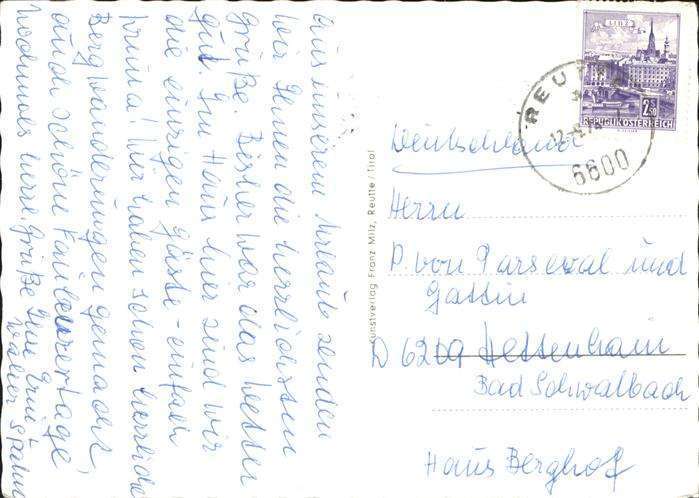 Aus unserem Urlaub senden
wir Ihnen die herzlichsten
Grüße. Bisher war das Wetter
gut. Im Haus hier sind wir
die einzigen Gäste - einfach
prima! Wir haben schon herrliche
Bergwanderungen gemacht,
auch schöne Faulenzertage,
nochmals Grüße Ihre
Walter
LINZ
2S50
REPUBLIK ÖSTERREICH
REUTTE
6600
Kunstverlag Franz Milz, Reutte/Tirol
Deutschland
Herrn
P. von Parseval und
Gattin
D 6209 Hettenhain
Bad Schwalbach
Haus Berghof